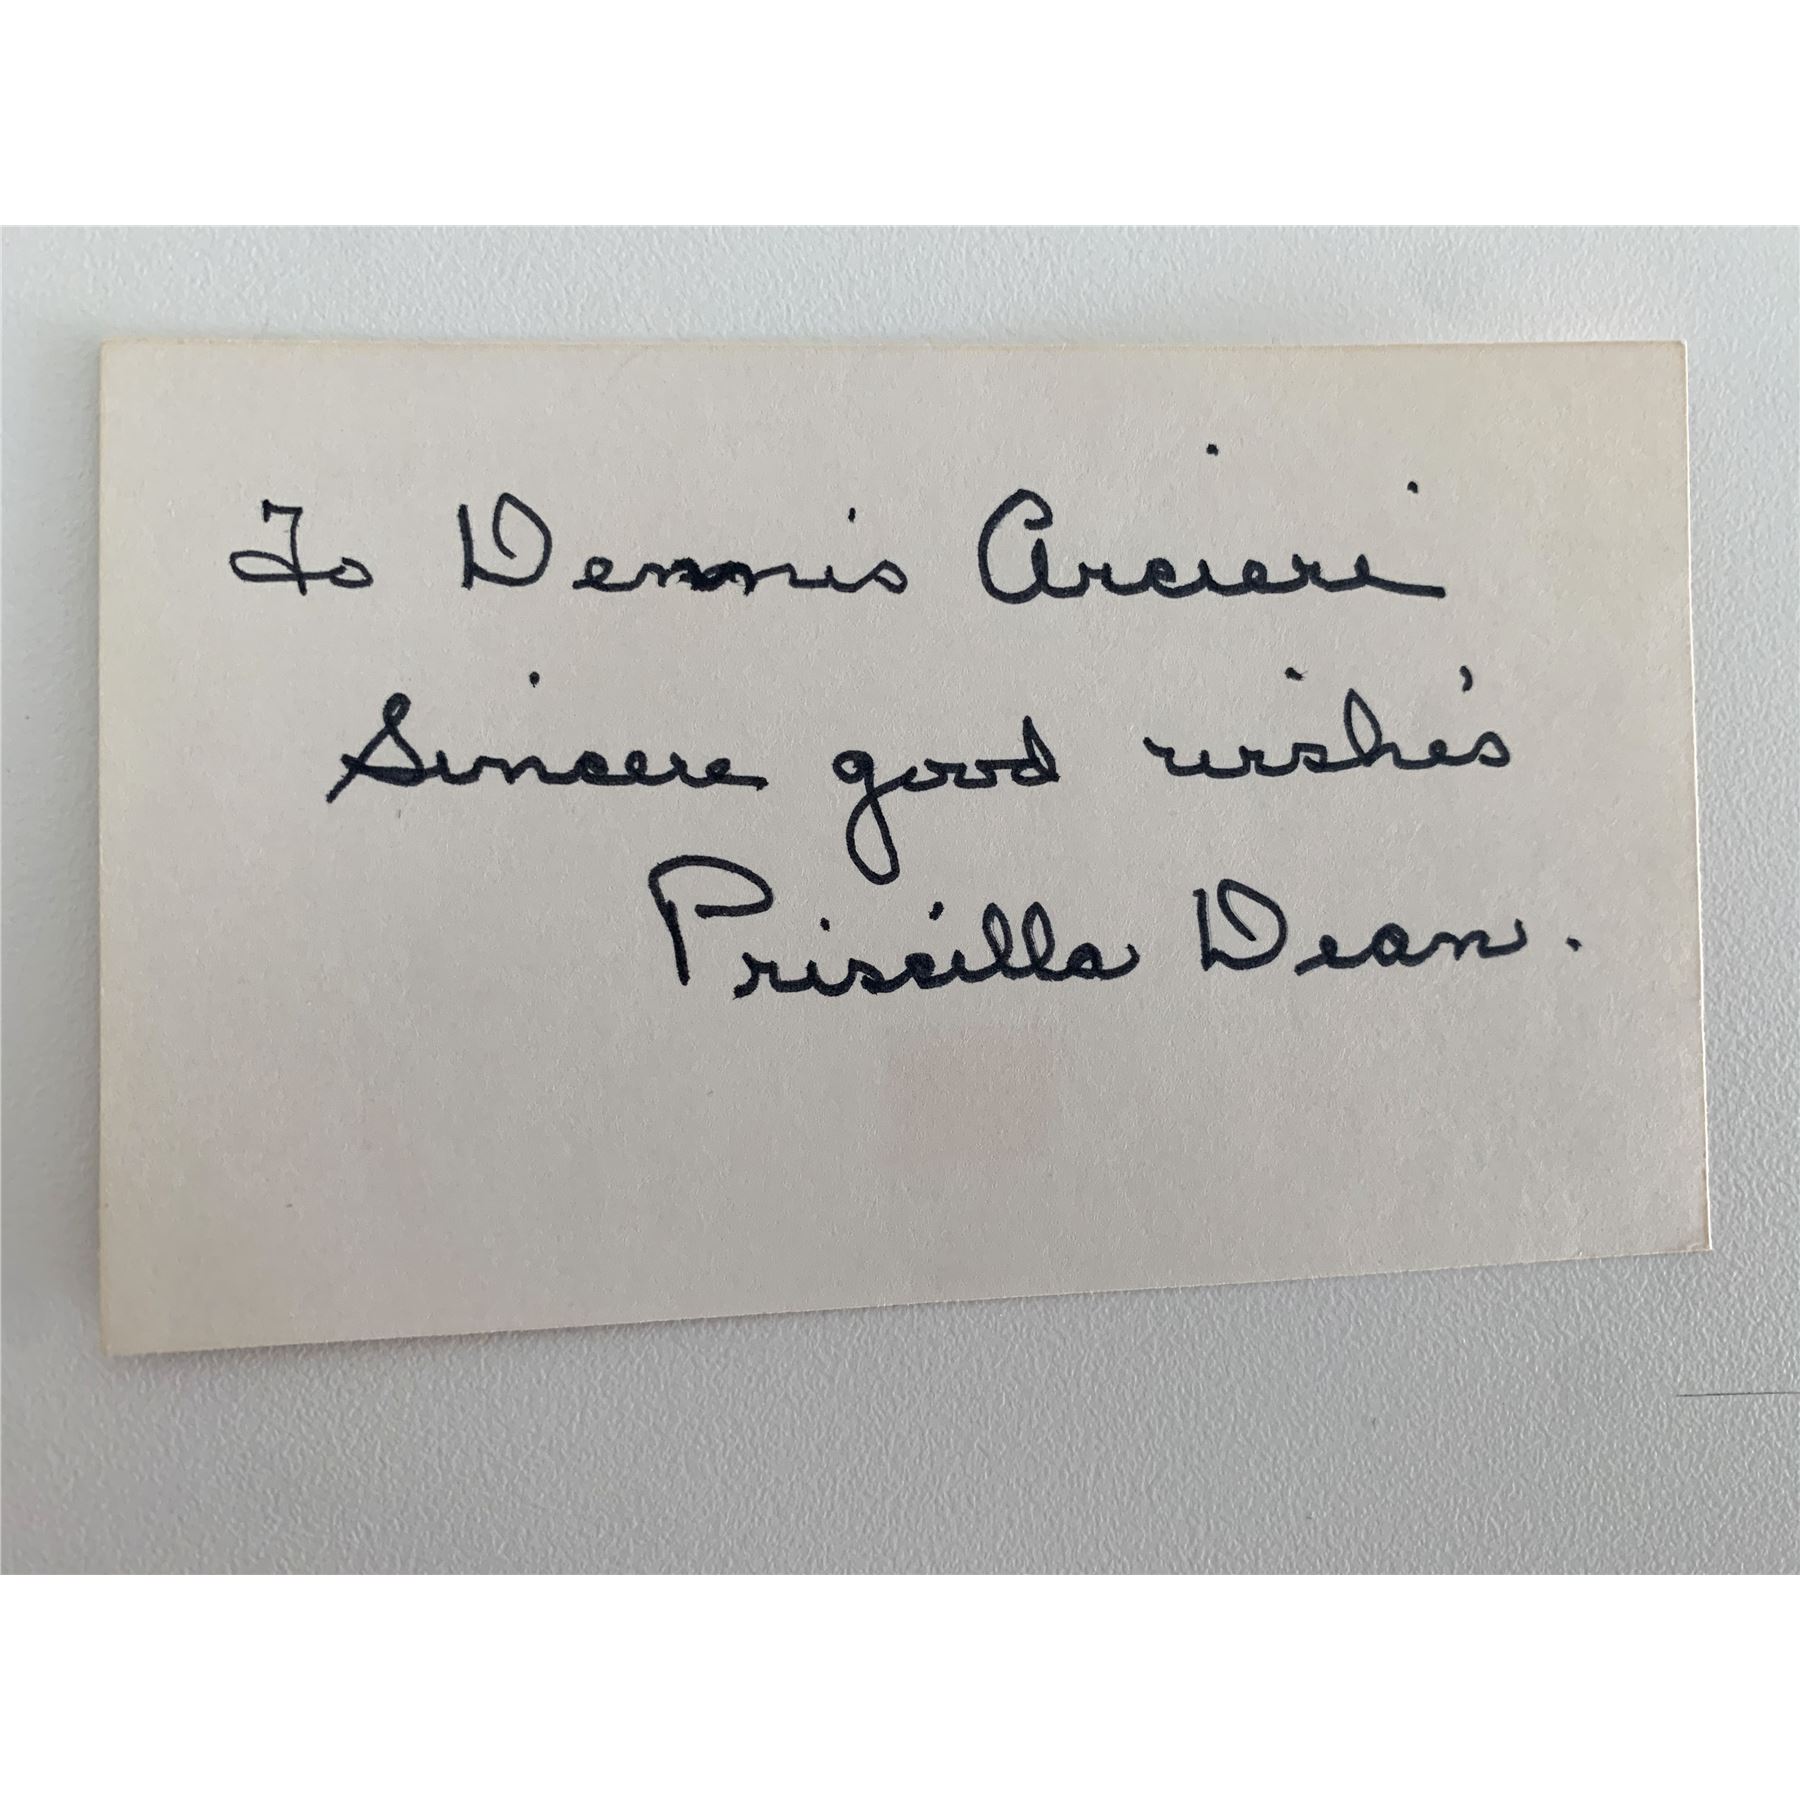 To Dennis Arcieri
Sincere good wishe's
Priscilla Dean.